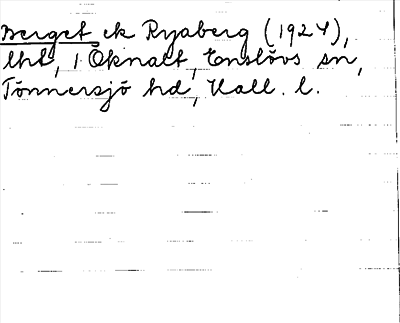 Berget ek Ryaberg (1924),
lht, 1 Öknalt, Enslövs sn,
Tönnersjö hd, Hall. l.